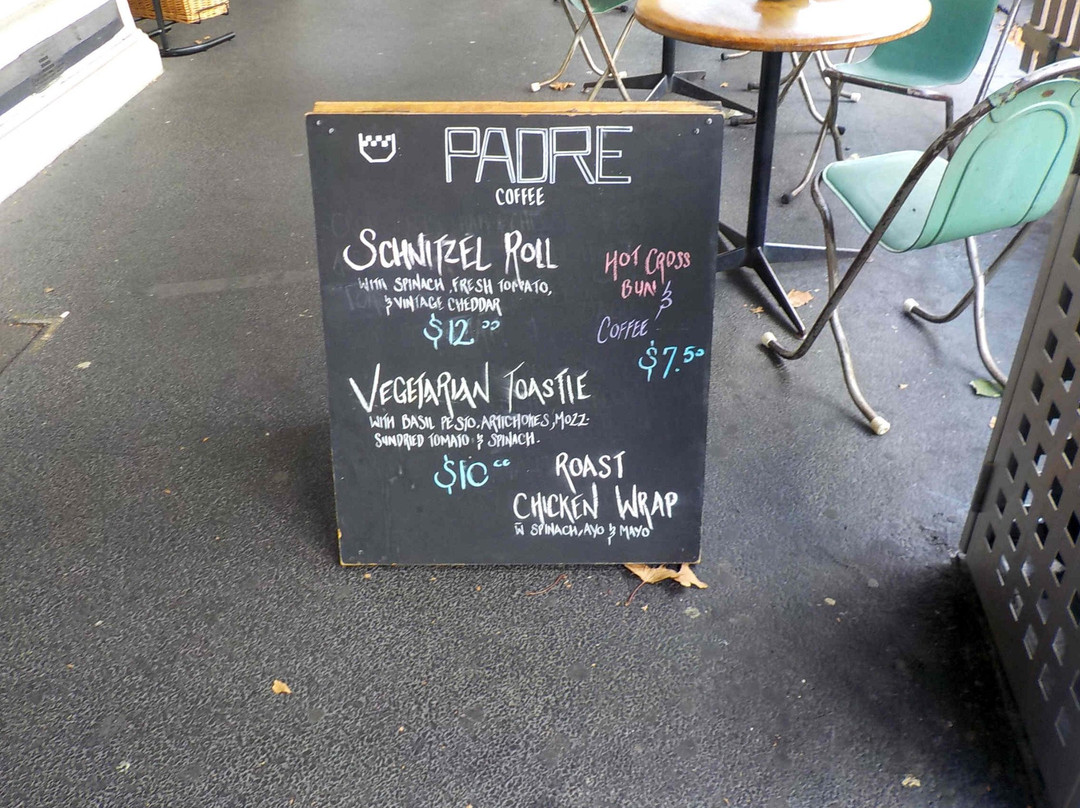 PADRE
COFFEE
SCHNITZEL ROLL
WITH SPINACH, FRESH TOMATO,
& VINTAGE CHEDDAR
$12.00
HOT CROSS
BUN &
COFFEE
$7.50
VEGETARIAN TOASTIE
WITH BASIL PESTO, ARTICHOKES, MOZZ
SUNDRIED TOMATO & SPINACH.
$10.00
ROAST
CHICKEN WRAP
W SPINACH, AVO & MAYO